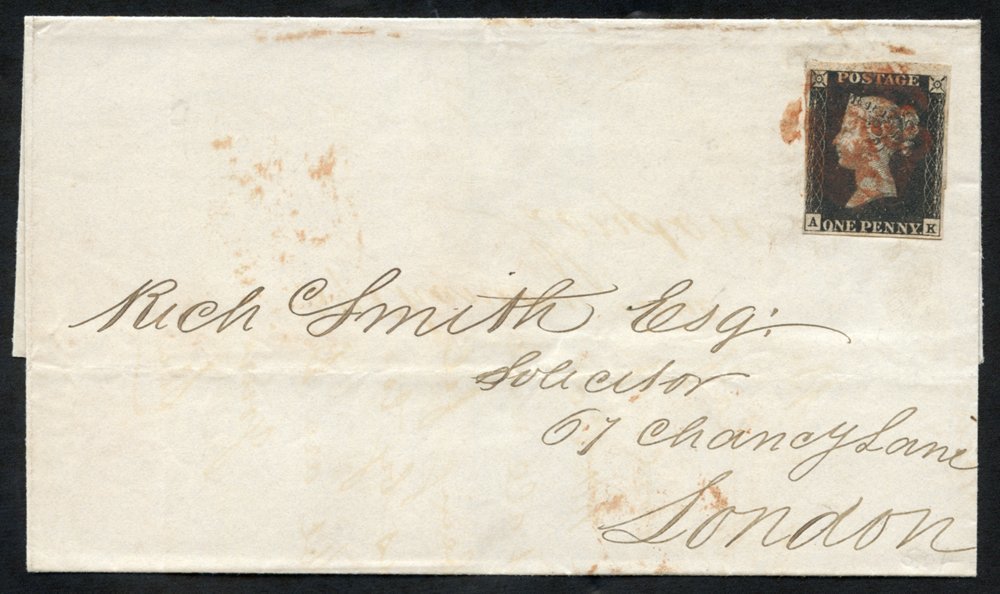 POSTAGE
A ONE PENNY K
Rich Smith Esq:
Solicitor
67 Chancy Lane
London